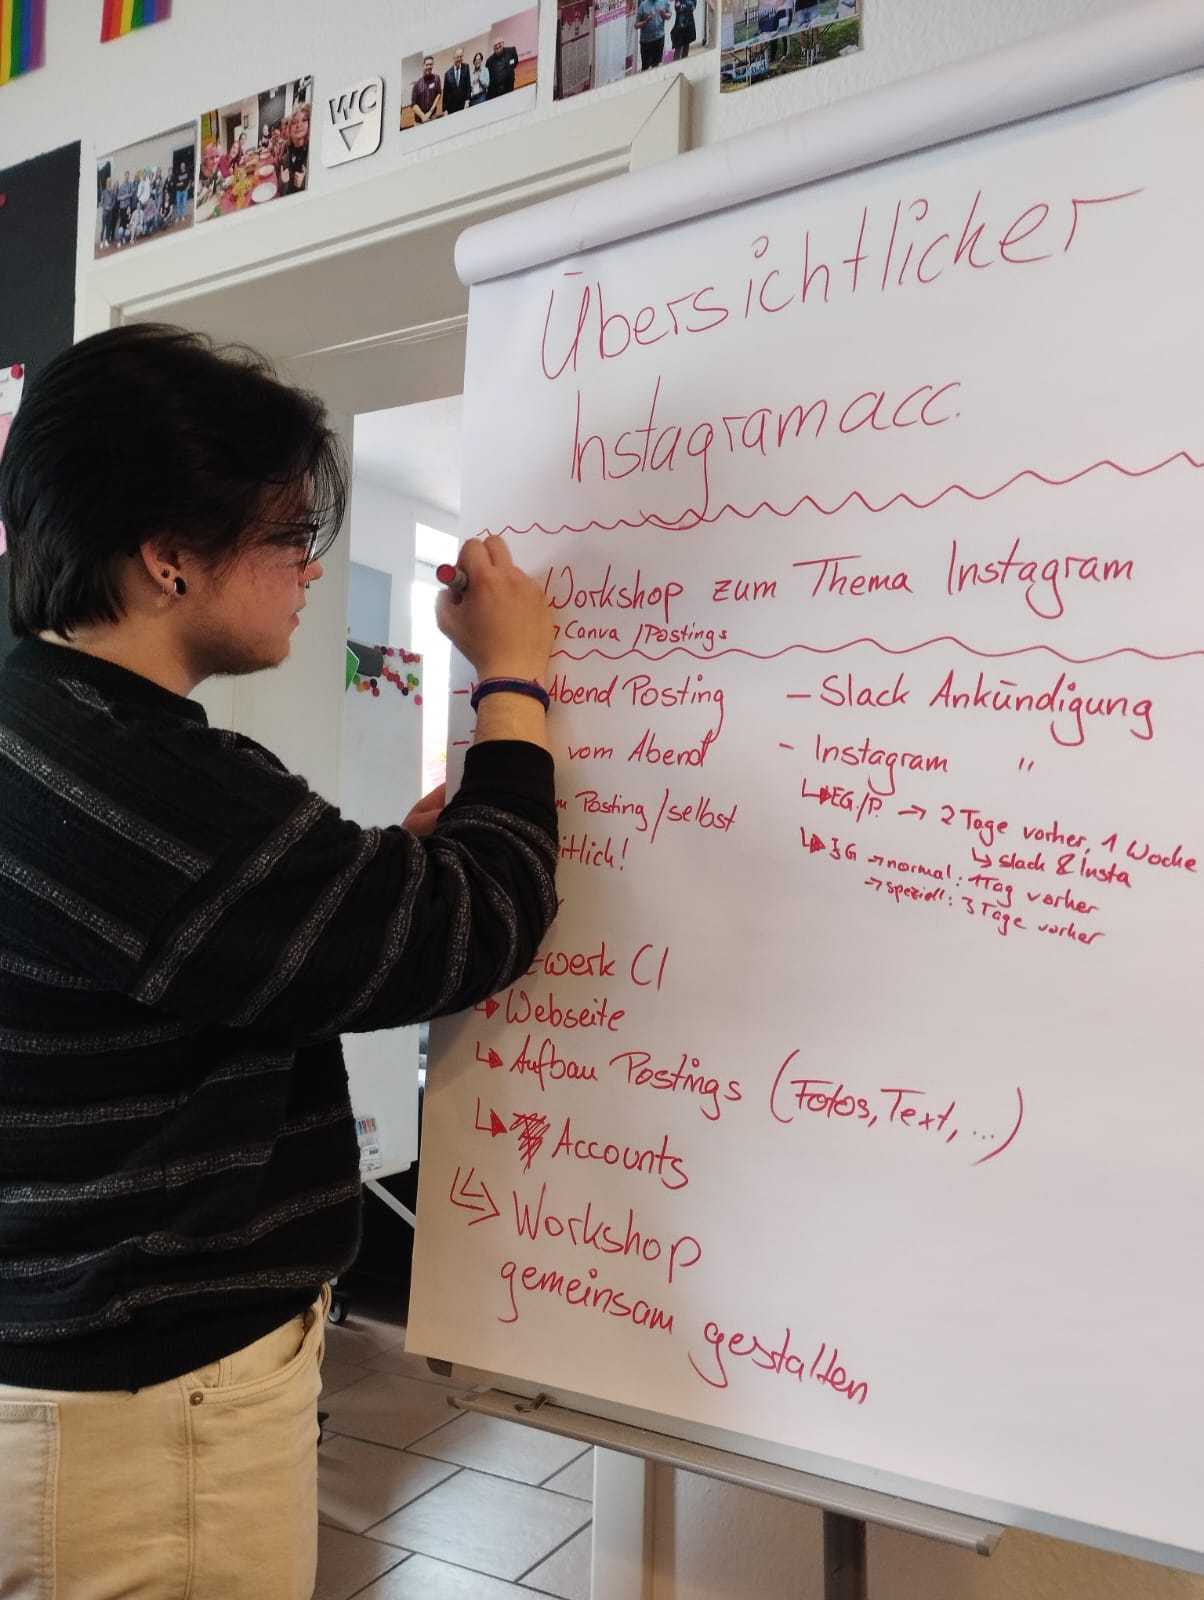 WC
Übersichtlicher
Instagramacc.
Workshop zum Thema Instagram
Canva / Postings
- Abend Posting
- vom Abend
Posting/selbst
itlich!
- Slack Ankündigung
- Instagram "
↳ EG./P. → 2 Tage vorher, 1 Woche
↳ slack & Insta
↳ JG → normal: 1 Tag vorher
→ speziell: 3 Tage vorher
werk CI
↳ Webseite
↳ Aufbau Postings (Fotos, Text, ...)
↳ Accounts
Workshop
gemeinsam gestalten